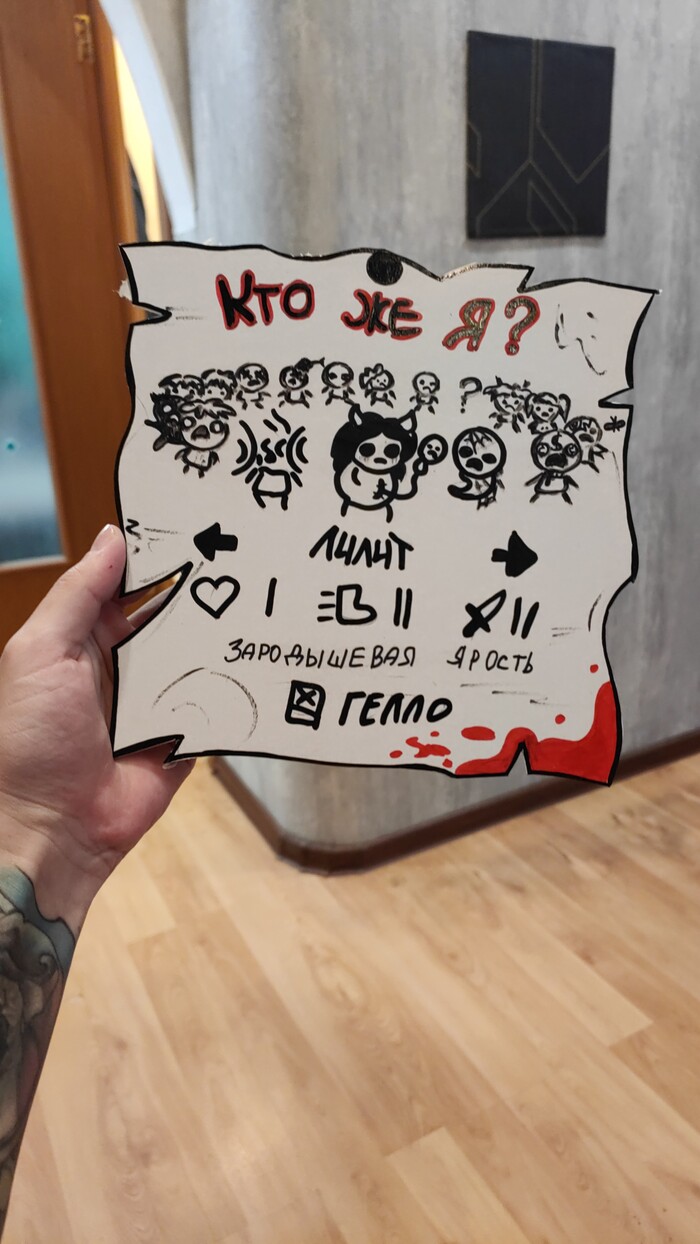 КТО ЖЕ Я?
?
ЛИЛИТ
I II II
ЗАРОДЫШЕВАЯ ЯРОСТЬ
ГЕЛЛО